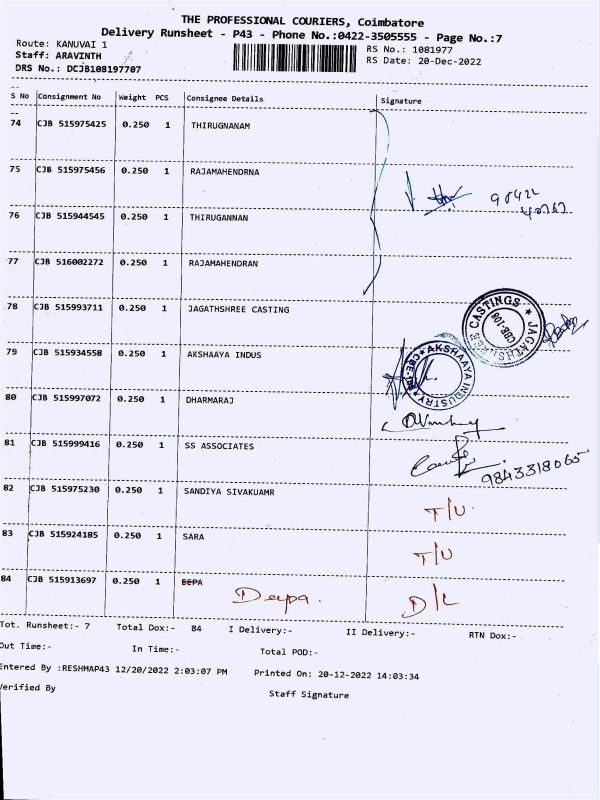 THE PROFESSIONAL COURIERS, Coimbatore
Delivery Runsheet - P43 - Phone No.:0422-3505555 - Page No.:7
Route: KANUVAI 1 RS No.: 1081977
Staff: ARAVINTH RS Date: 20-Dec-2022
DRS No.: DCJB108197707
S No Consignment No Weight PCS Consignee Details Signature
74 CJB 515975425 0.250 1 THIRUGNANAM
75 CJB 515975456 0.250 1 RAJAMAHENDRNA
76 CJB 515944545 0.250 1 THIRUGANNAN
77 CJB 516002272 0.250 1 RAJAMAHENDRAN
78 CJB 515993711 0.250 1 JAGATHSHREE CASTING
79 CJB 515934558 0.250 1 AKSHAAYA INDUS
AKSHAAYA INDUSTRY
80 CJB 515997072 0.250 1 DHARMARAJ
81 CJB 515999416 0.250 1 SS ASSOCIATES
9843318065
82 CJB 515975230 0.250 1 SANDIYA SIVAKUAMR T/U
83 CJB 515924185 0.250 1 SARA T/U
84 CJB 515913697 0.250 1 EEPA Deepa. D/L
Tot. Runsheet:- 7 Total Dox:- 84 I Delivery:- II Delivery:- RTN Dox:-
Out Time:- In Time:- Total POD:-
Entered By :RESHMAP43 12/20/2022 2:03:07 PM Printed On: 20-12-2022 14:03:34
Verified By Staff Signature